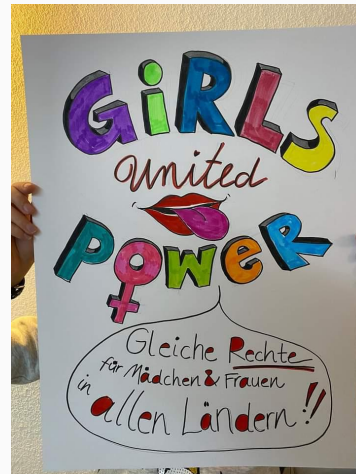 GiRLS
United
POWER
Gleiche Rechte
für Mädchen & Frauen
in allen Ländern!!